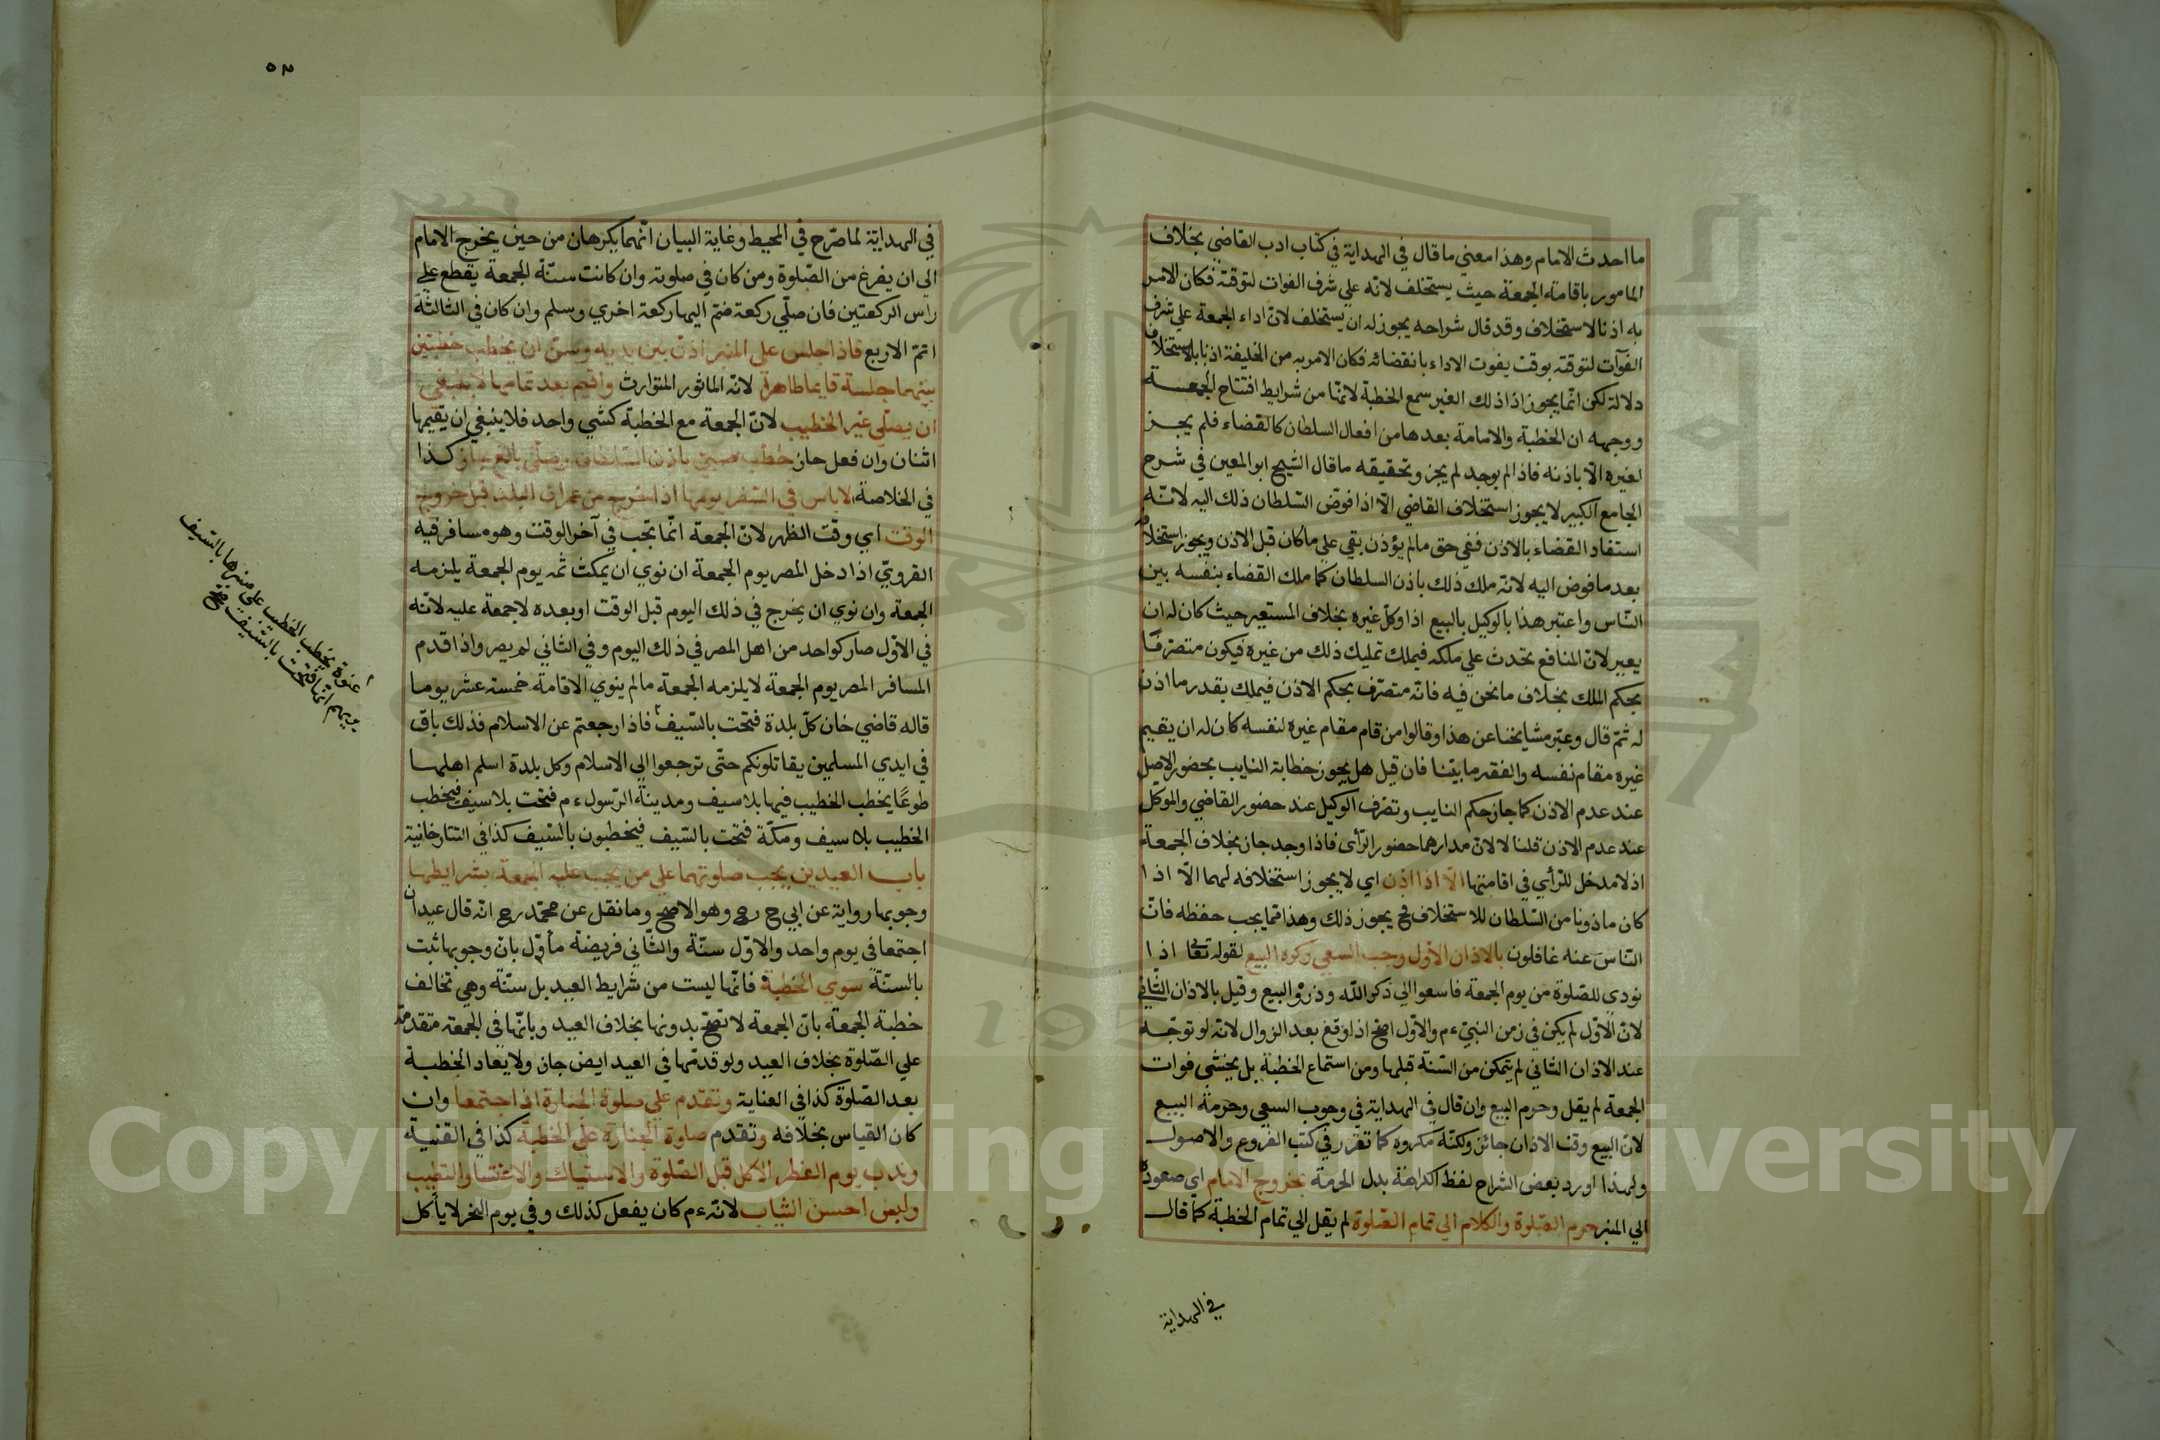 ما احدث الامام وهذا معني ما قال في الهداية في كتاب ادب القاضي بخلاف
المامور باقامة الجمعة حيث يستخلف لانه علي شرف الفوات لتوقته فكان الامر
به اذنا بالاستخلاف وقد قال شراحه يجوز له ان يستخلف لان اداء الجمعة علي شرف
الفوات لتوقته بوقت يفوت الاداء بانقضائه فكان الامر به من الخليفة اذنا بالاستخلاف
دلالة لكن انما يجوز اذا ذلك الغير سمع الخطبة لانها من شرايط افتتاح الجمعة
ووجهه ان الخطبة والامامة بعدها من افعال السلطان كالقضاء فلم يجز
لغيره الا باذنه فاذا لم يوجد لم يجز وتحقيقه ما قال الشيخ ابو المعين في شرح
الجامع الكبير لا يجوز استخلاف القاضي الا اذا فوض السلطان ذلك اليه لانه
استفاد القضاء بالاذن ففي حق ما لم يؤذن بقي علي ما كان قبل الاذن ويجوز استخلافه
بعد ما فوض اليه لانه ملك ذلك باذن السلطان كما ملك القضاء بنفسه بين
الناس واعتبر هذا بالوكيل بالبيع اذا وكل غيره بخلاف المستعير حيث كان له ان
يعير لان المنافع تحدث علي ملكه فيملك تمليك ذلك من غيره فيكون متصرفا
بحكم الملك بخلاف ما نحن فيه فانه متصرف بحكم الاذن فيملك بقدر ما اذن
له ثم قال وعبر مشايخنا عن هذا وقالوا من قام مقام غيره لنفسه كان له ان يقيم
غيره مقام نفسه والفقه ما بينا فان قيل هل يجوز خطابة النايب بحضور الاصل
عند عدم الاذن كما جاز حكم النايب وتصرف الوكيل عند حضور القاضي والموكل
عند عدم الاذن قلنا لا لان مدارهما حضور الرأى فاذا وجد جاز بخلاف الجمعة
اذ لا مدخل للرأي في اقامتها الا اذا اذن اي لا يجوز استخلافه لهما الا اذا
كان ماذونا من السلطان للاستخلاف فح يجوز ذلك وهذا مما يجب حفظه فان
الناس عنه غافلون بالاذان الاول وجب السعي وكره البيع لقوله تعا اذا
نودي للصلوة من يوم الجمعة فاسعوا الي ذكر الله وذروا البيع وقيل بالاذان الثاني
لان الاول لم يكن في زمن النبي ءم والاول اصح اذا وقع بعد الزوال لانه لو توجه
عند الاذان الثاني لم يتمكن من السنة قبلها ومن استماع الخطبة بل يخشي فوات
الجمعة لم يقل وحرم البيع وان قال في الهداية في وجوب السعي وحرمة البيع
لان البيع وقت الاذان جائز ولكنه مكروه كما تقرر في كتب الفروع والاصول
ولهذا اورد بعض الشراح لفظ الكراهة بدل الحرمة بخروج الامام اي صعوده
الي المنبر حرم الصلوة والكلام الي تمام الصلوة لم يقل الي تمام الخطبة كما قال
في الهداية
٥٣
في الهداية لما صرح في المحيط وغاية البيان انهما يكرهان من حين يخرج الامام
الي ان يفرغ من الصلوة ومن كان في صلوته وان كانت سنة الجمعة يقطع علي
راس الركعتين فان صلي ركعة ضم اليها ركعة اخري وسلم وان كان في الثالثة
اتم الاربع فاذا جلس علي المنبر اذن بين يديه وسن ان يخطب خطبتين
بينهما جلسة قايما طاهرا لانه الماثور المتوارث واقيم بعد تمامها لا ينبغي
ان يصلي غير الخطيب لان الجمعة مع الخطبة كشي واحد فلا ينبغي ان يقيمها
اثنان وان فعل جاز خطب صبي باذن السلطان وصلي بالغ جاز كذا
في الخلاصة لا باس في السفر يومها اذا خرج من عمران البلد قبل خروج
الوقت اي وقت الظهر لان الجمعة انما تجب في آخر الوقت وهو مسافر فيه
القروي اذا دخل المصر يوم الجمعة ان نوي ان يمكث ثمه يوم الجمعة يلزمه
الجمعة وان نوي ان يخرج في ذلك اليوم قبل الوقت او بعده لا جمعة عليه لانه
في الاول صار كواحد من اهل المصر في ذلك اليوم وفي الثاني لم يصر واذا قدم
المسافر المصر يوم الجمعة لا يلزمه الجمعة ما لم ينوي الاقامة خمسة عشر يوما
قاله قاضي خان كل بلدة فتحت بالسيف فاذا رجعتم عن الاسلام فذلك باق
في ايدي المسلمين يقاتلونكم حتي ترجعوا الي الاسلام وكل بلدة اسلم اهلها
طوعا يخطب الخطيب فيها بلا سيف ومدينة الرسول ءم فتحت بلا سيف فيخطب
الخطيب بلا سيف ومكة فتحت بالسيف فيخطبون بالسيف كذا في التتارخانية
باب العيدين يجب صلوتهما علي من يجب عليه الجمعة بشرايطها
وجوبها رواية عن ابي ح رح وهو الاصح وما نقل عن محمد رح انه قال عيدان
اجتمعا في يوم واحد والاول سنة والثاني فريضة مأول بان وجوبها ثبت
بالسنة سوي الخطبة فانها ليست من شرايط العيد بل سنة وهي تخالف
خطبة الجمعة بان الجمعة لا تصح بدونها بخلاف العيد وبانها في الجمعة متقدمة
علي الصلوة بخلاف العيد ولو قدمها في العيد ايض جاز ولا يعاد الخطبة
بعد الصلوة كذا في العناية وتقدم علي صلوة الجنازة اذا اجتمعا وان
كان القياس بخلافه وتقدم صلوة الجنازة علي الخطبة كذا في القنية
وندب يوم الفطر الاكل قبل الصلوة والاستياك والاغتسال والتطيب
ولبس احسن الثياب لانه ءم كان يفعل كذلك وفي يوم النحر لا يأكل
عنوة يخطب الخطيب علي منبرها بالسيف
يريهم انها فتحت بالسيف صح
Copyright © King Saud University